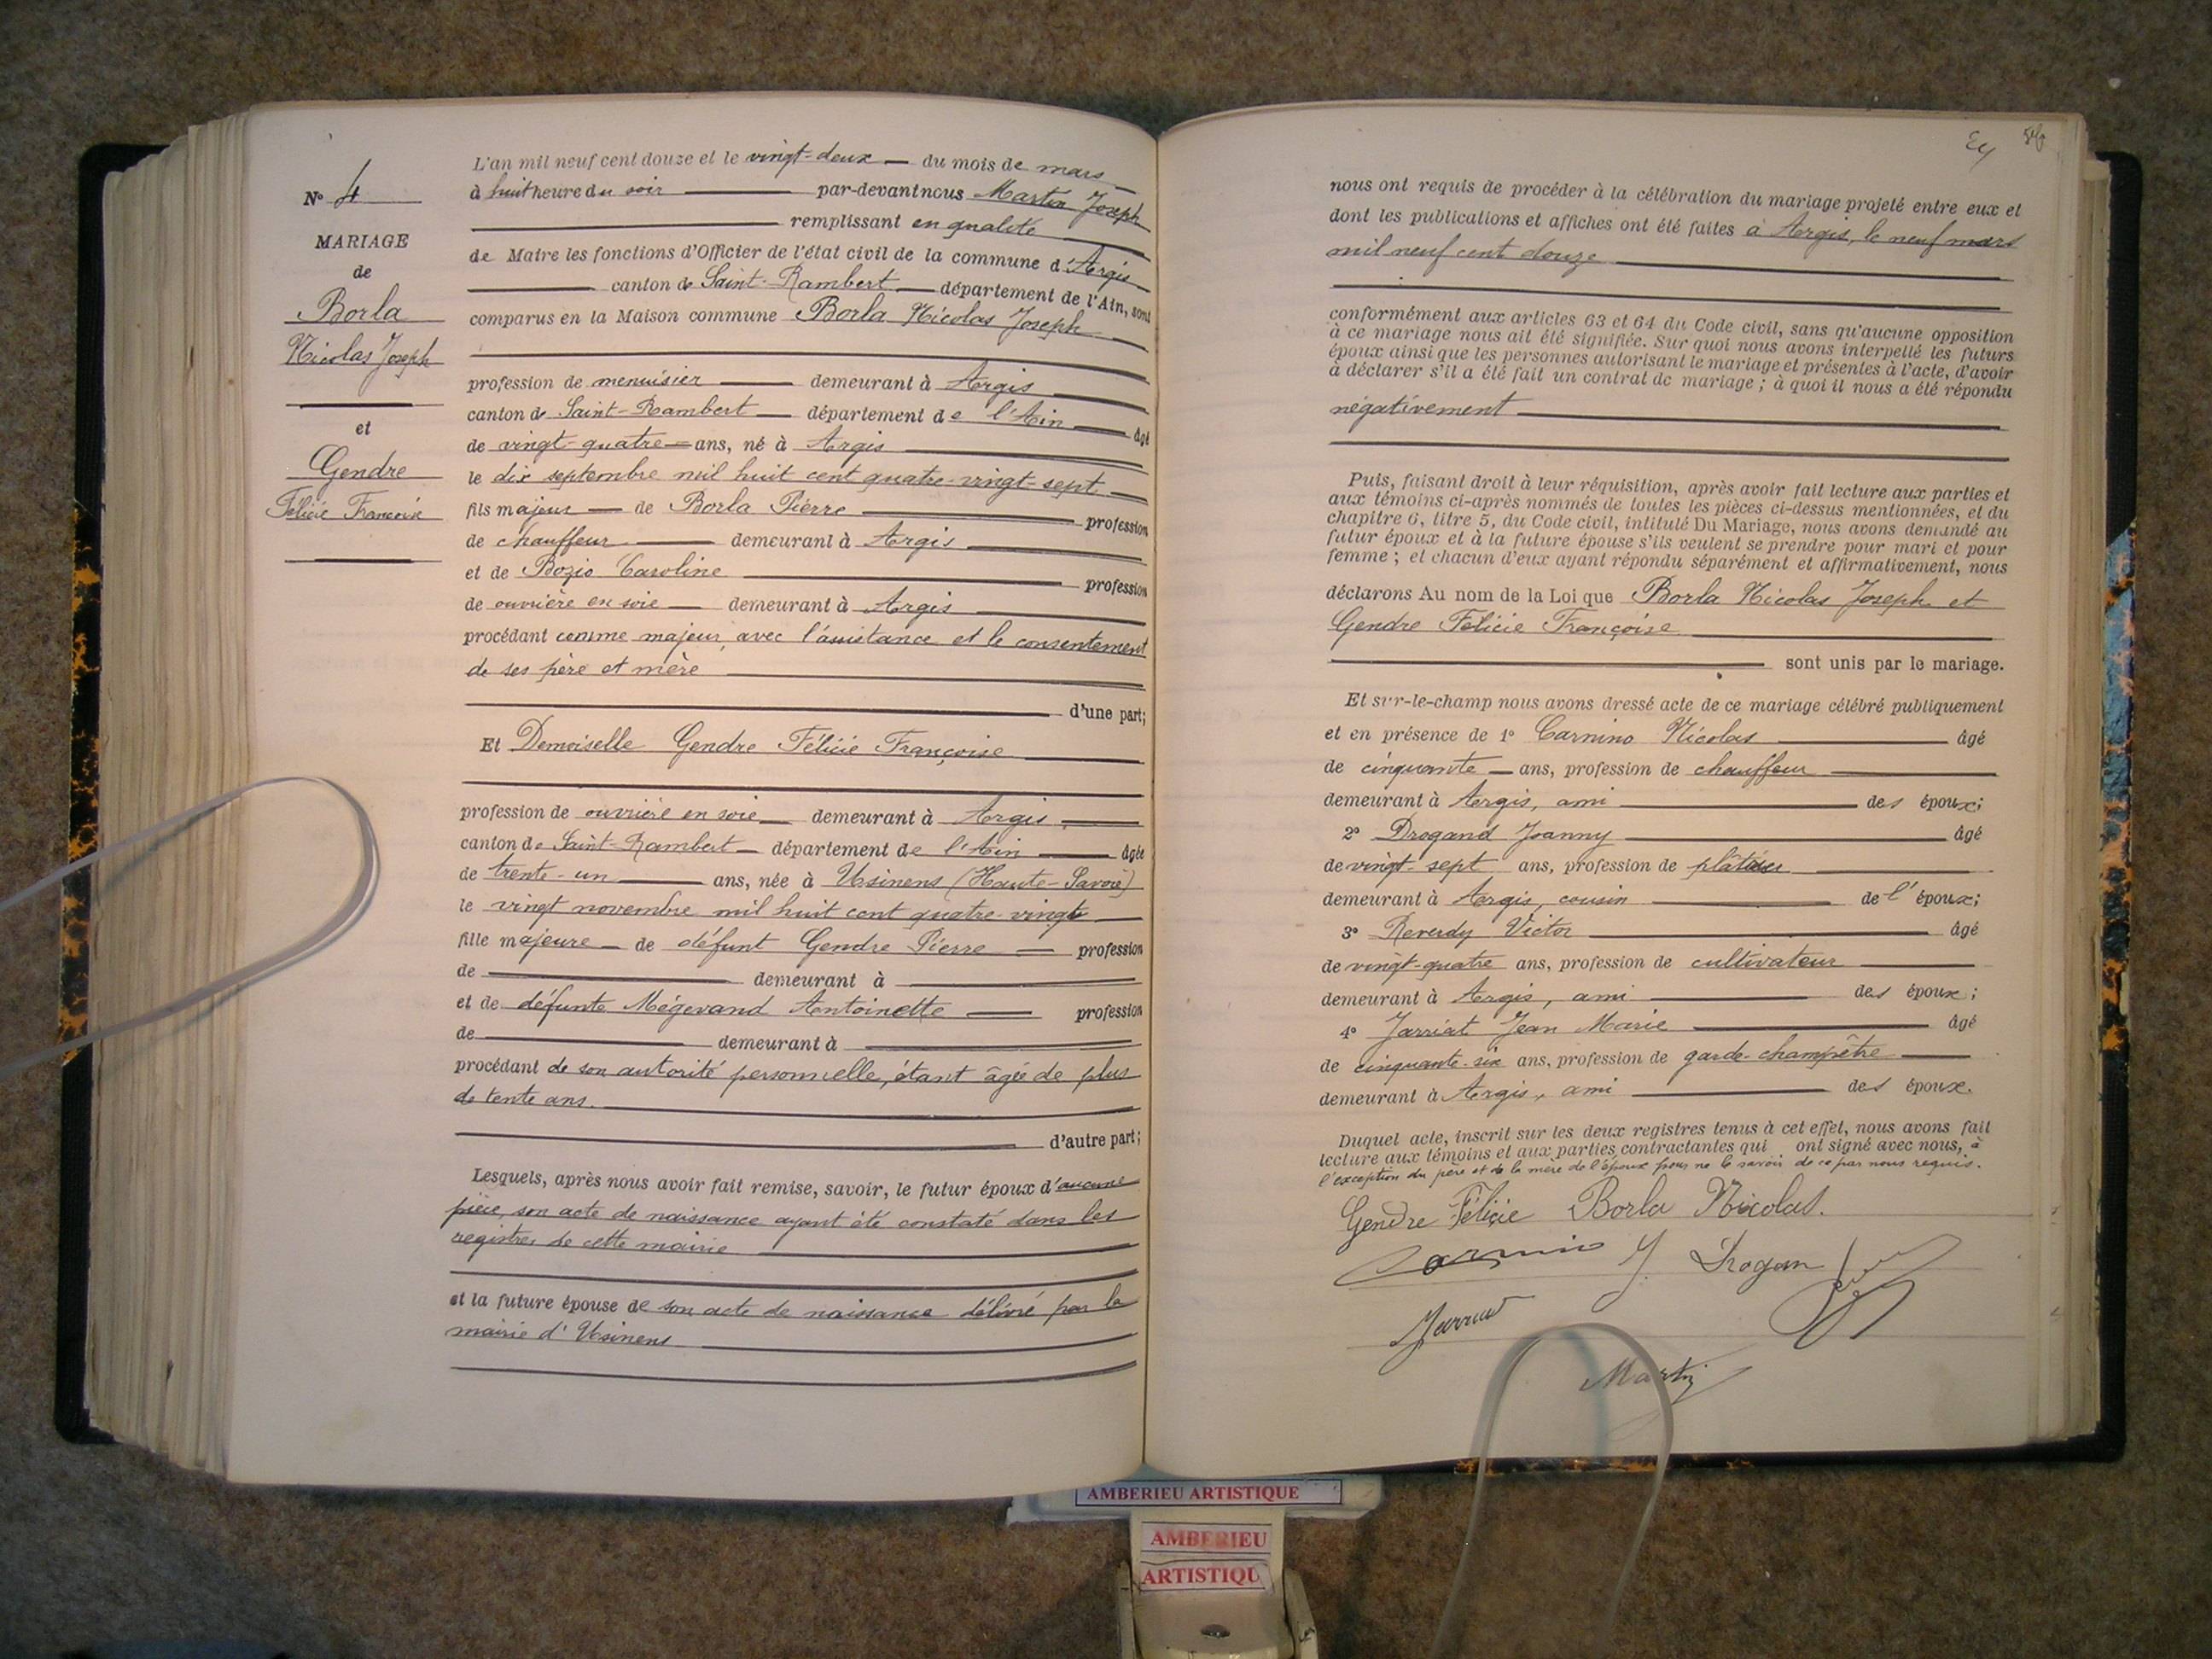 N° 4
MARIAGE
de
Borla
Nicolas Joseph
et
Gendre
Félicie Françoise
L'an mil neuf cent douze et le vingt-deux du mois de mars
à huit heure du soir par-devant nous Martin Joseph
remplissant en qualité
de Maire les fonctions d'Officier de l'état civil de la commune d'Argis
canton de Saint-Rambert département de l'Ain, sont
comparus en la Maison commune Borla Nicolas Joseph
profession de menuisier demeurant à Argis
canton de Saint-Rambert département de l'Ain âgé
de vingt-quatre ans, né à Argis
le dix septembre mil huit cent quatre-vingt-sept
fils majeur de Borla Pierre profession
de chauffeur demeurant à Argis
et de Bozio Caroline profession
de ouvrière en soie demeurant à Argis
procédant comme majeur, avec l'assistance et le consentement
de ses père et mère
d'une part;
Et Demoiselle Gendre Félicie Françoise
profession de ouvrière en soie demeurant à Argis
canton de Saint-Rambert département de l'Ain âgée
de trente-un ans, née à Usinens (Haute-Savoie)
le vingt novembre mil huit cent quatre-vingt
fille majeure de défunt Gendre Pierre profession
de demeurant à
et de défunte Mégevand Antoinette profession
de demeurant à
procédant de son autorité personnelle, étant âgée de plus
de tente ans.
d'autre part;
Lesquels, après nous avoir fait remise, savoir, le futur époux d'aucune
pièce, son acte de naissance ayant été constaté dans les
registres de cette mairie
et la future épouse de son acte de naissance délivré par la
mairie d'Usinens
nous ont requis de procéder à la célébration du mariage projeté entre eux et
dont les publications et affiches ont été faites à Argis, le neuf mars
mil neuf cent douze
conformément aux articles 63 et 64 du Code civil, sans qu'aucune opposition
à ce mariage nous ait été signifiée. Sur quoi nous avons interpellé les futurs
époux ainsi que les personnes autorisant le mariage et présentes à l'acte, d'avoir
à déclarer s'il a été fait un contrat de mariage ; à quoi il nous a été répondu
négativement
Puis, faisant droit à leur réquisition, après avoir fait lecture aux parties et
aux témoins ci-après nommés de toutes les pièces ci-dessus mentionnées, et du
chapitre 6, titre 5, du Code civil, intitulé Du Mariage, nous avons demandé au
futur époux et à la future épouse s'ils veulent se prendre pour mari et pour
femme ; et chacun d'eux ayant répondu séparément et affirmativement, nous
déclarons Au nom de la Loi que Borla Nicolas Joseph et
Gendre Félicie Françoise
sont unis par le mariage.
Et sur-le-champ nous avons dressé acte de ce mariage célébré publiquement
et en présence de 1° Carnino Nicolas âgé
de cinquante ans, profession de chauffeur
demeurant à Argis, ami des époux;
2° Drogand Joanny âgé
de vingt-sept ans, profession de plâtrier
demeurant à Argis, cousin de l'époux;
3° Reverdy Victor âgé
de vingt-quatre ans, profession de cultivateur
demeurant à Argis, ami des époux;
4° Jarriat Jean Marie âgé
de cinquante-six ans, profession de garde-champêtre
demeurant à Argis, ami des époux.
Duquel acte, inscrit sur les deux registres tenus à cet effet, nous avons fait
lecture aux témoins et aux parties contractantes qui ont signé avec nous, à
l'exception du père et de la mère de l'époux pour ne le savoir de ce par nous requis.
Gendre Félicie Borla Nicolas.
Carnino J. Drogan
Martin
AMBERIEU ARTISTIQUE
AMBERIEU
ARTISTIQU